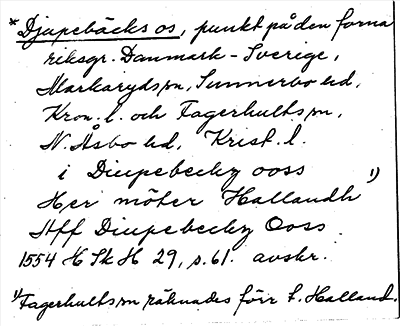 *Djupebäcks os, punkt på den forna
riksgr. Danmark - Sverige,
Markaryds sn, Sunnerbo hd,
Kron. l. och Fagerhults sn,
N. Åsbo hd, Krist. l.
i Diupebeckz ooss
Her möter Hallandh 1)
Aff Diupebeckz Ooss.
1554 H Sk H 29, s. 61. avskr.
1) Fagerhults sn räknades förr t. Halland.